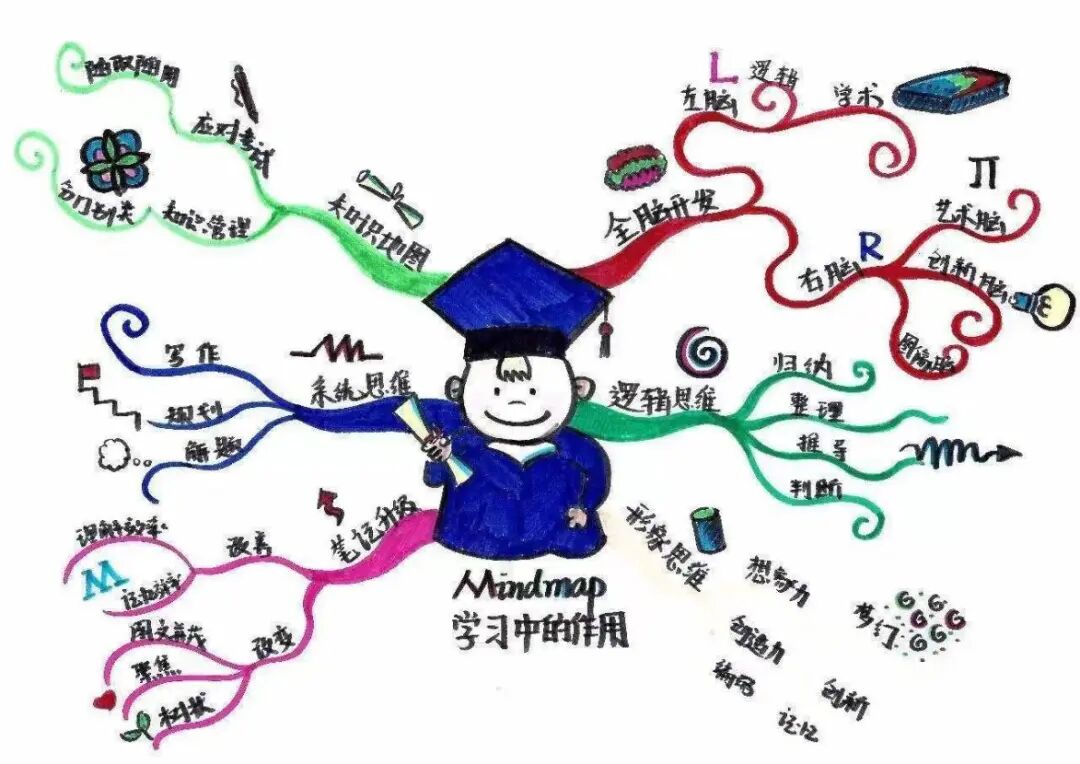 Mindmap
学习中的作用
全脑开发
左脑
L
逻辑
学术
右脑
R
艺术脑
创新脑
逻辑思维
归纳
整理
推导
判断
形象思维
想象力
创造力
编写
创新
记忆
笔记升级
改善
理解效率
M
改变
图文并茂
聚焦
树状
系统思维
写作
规划
解题
知识地图
应对考试
随取随用
知识管理
分门别类